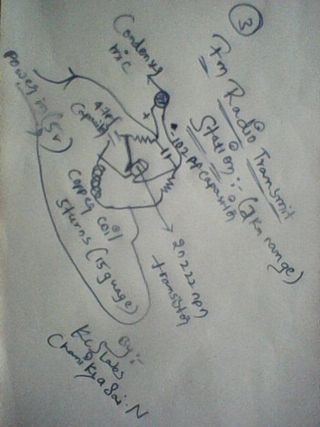 ③
Fm Radio Transmit
Station :- (2km range)
Condenser
mic
+
102 pf capasitor
47pf
Capasit
power in (5v)
copper coil
5turns (15 guage)
2n222 npn
transistor
By :-
Labs
Chanikya Sai. N